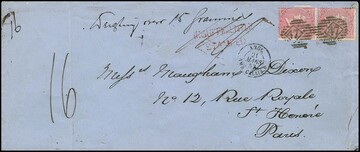 Weighing over 15 Grammes
16
16
Messrs Maugham & Dixon
No. 12, Rue Royale
St. Honoré
Paris.